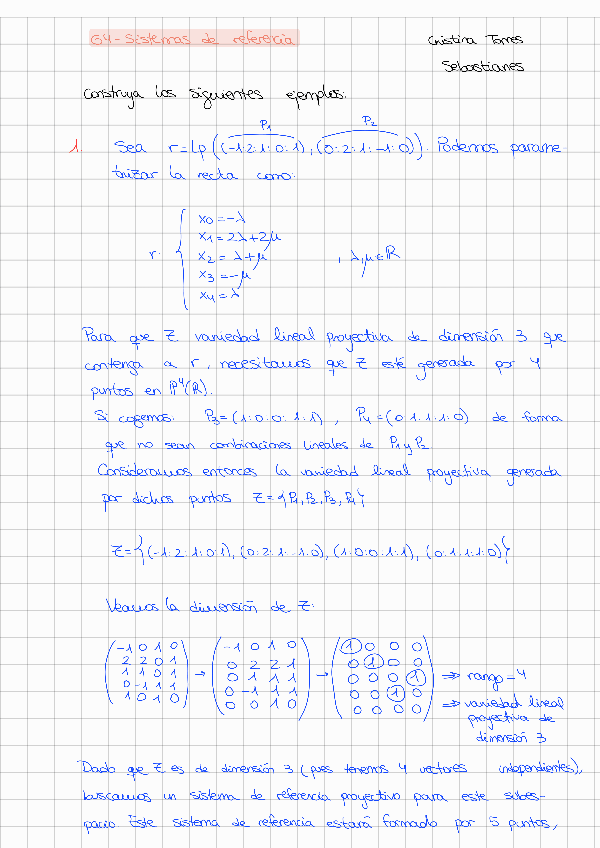 G4-Sistemas de referencia
Cristina Torres
Sebastianes
Construya los siguientes ejemplos:
P1 P2
1 Sea r=Lp((-1:2:1:0:1),(0:2:1:-1:0)). Podemos parame-
trizar la recta como:
x0=-λ
x1=2λ+2μ
r: x2=λ+μ , λ,μ∈R
x3=-μ
x4=λ
Para que Z variedad lineal proyectiva de dimensión 3 que
contenga a r, necesitamos que Z esté generada por 4
puntos en P⁴(R).
Si cogemos P3=(1:0:0:1:1), P4=(0:1:1:1:0) de forma
que no sean combinaciones lineales de P1 y P2.
Consideramos entonces la variedad lineal proyectiva generada
por dichos puntos Z={P1,P2,P3,P4}
Z={(-1:2:1:0:1),(0:2:1:-1:0),(1:0:0:1:1),(0:1:1:1:0)}
Veamos la dimensión de Z:
-1 0 1 0 -1 0 1 0 1 0 0 0
2 2 0 1 0 2 2 1 0 1 0 0
1 1 0 1 → 0 1 1 1 → 0 0 0 1 ⇒ rango=4
0 -1 1 1 0 -1 1 1 0 0 1 0 ⇒ variedad lineal
1 0 1 0 0 0 1 0 0 0 0 0 proyectiva de
dimensión 3
Dado que Z es de dimensión 3 (pues tenemos 4 vectores independientes),
buscamos un sistema de referencia proyectivo para este subes-
pacio. Este sistema de referencia estará formado por 5 puntos,